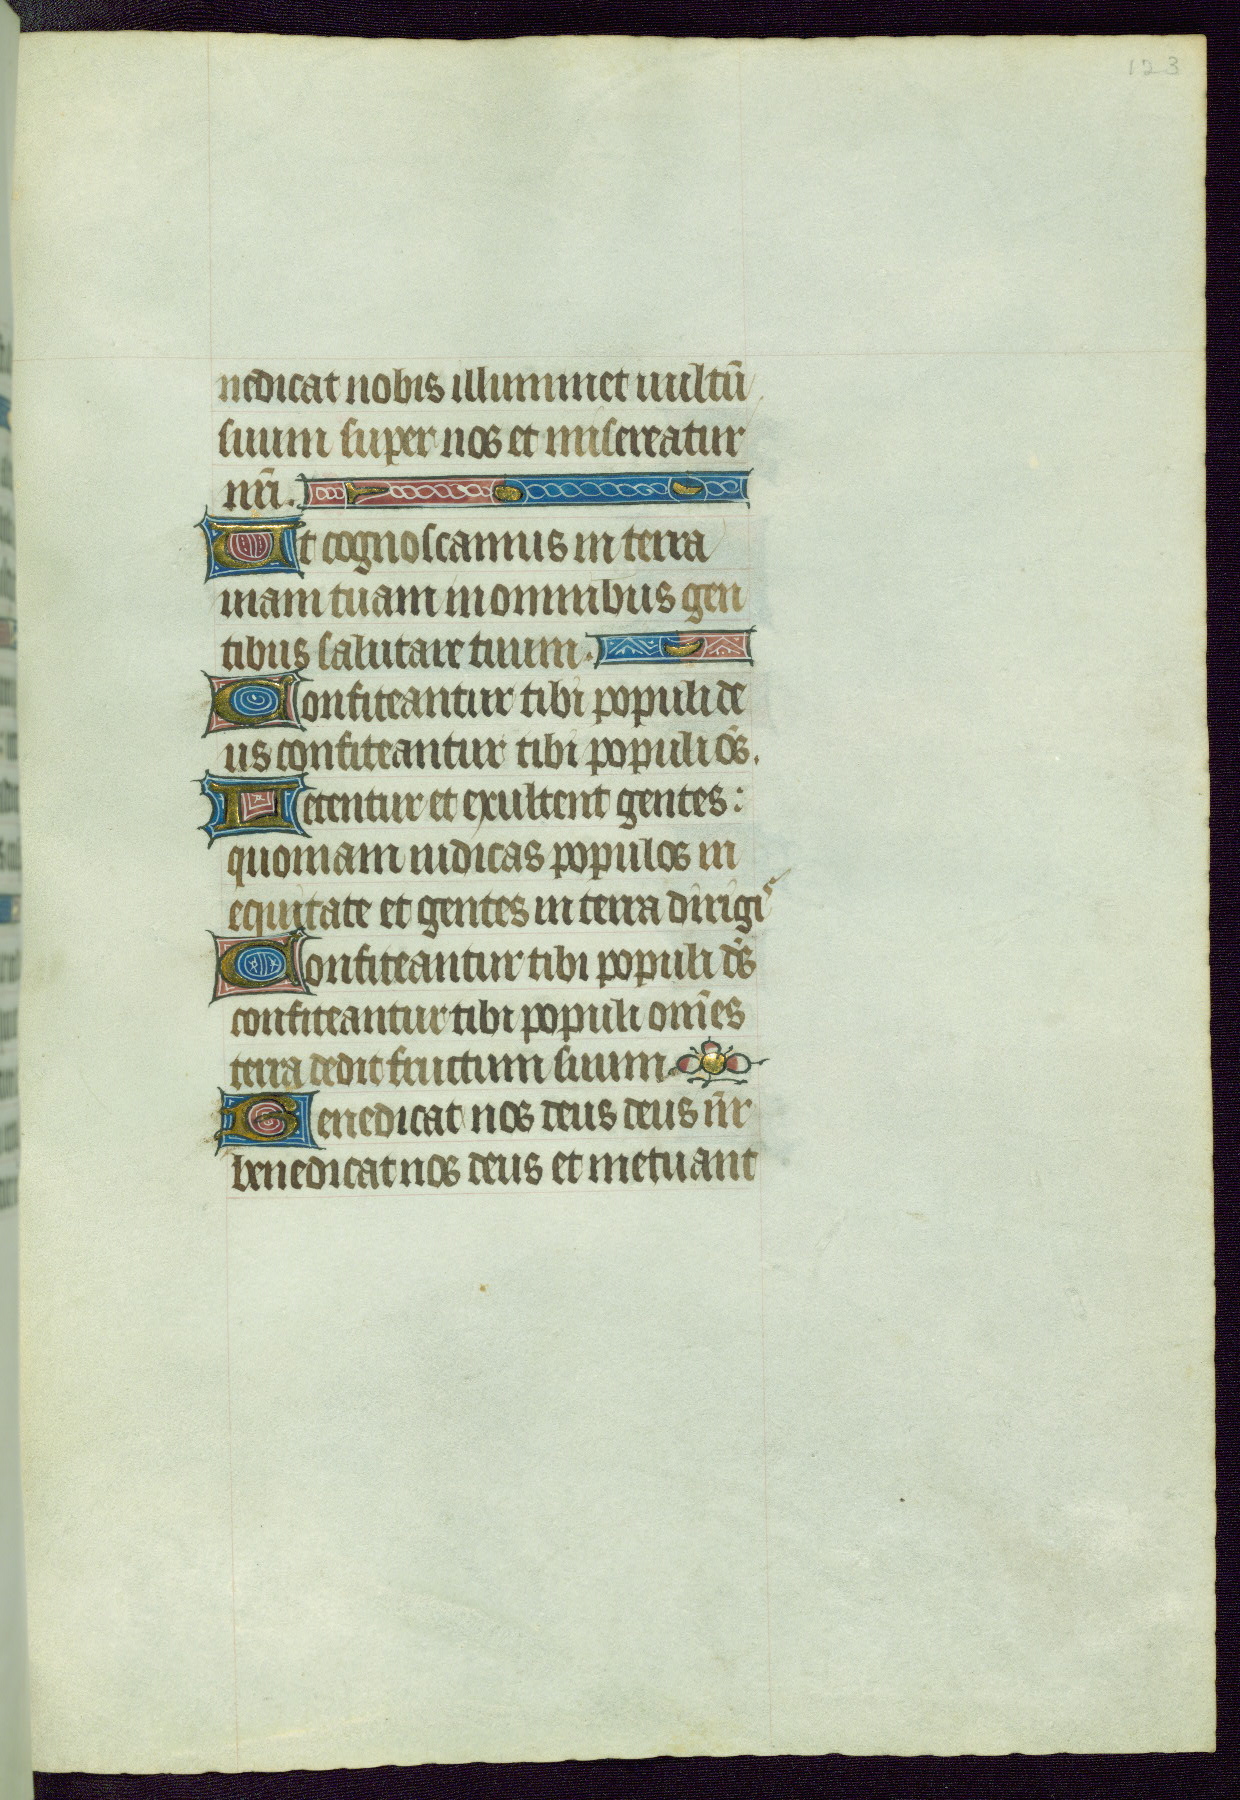 123
nedicat nobis illuminet uultū
suum super nos et misereatur
nrī.
Ut cognoscamus in terra
uiam tuam in omnibus gen
tibus salutare tuum.
Confiteantur tibi populi de
us confiteantur tibi populi om̄s.
Letentur et exultent gentes:
quoniam iudicas populos in
equitate et gentes in terra dirigis
Confiteantur tibi populi ds̄
confiteantur tibi populi omn̄es
terra dedit fructum suum.
Benedicat nos deus deus nr̄
benedicat nos deus et metuant